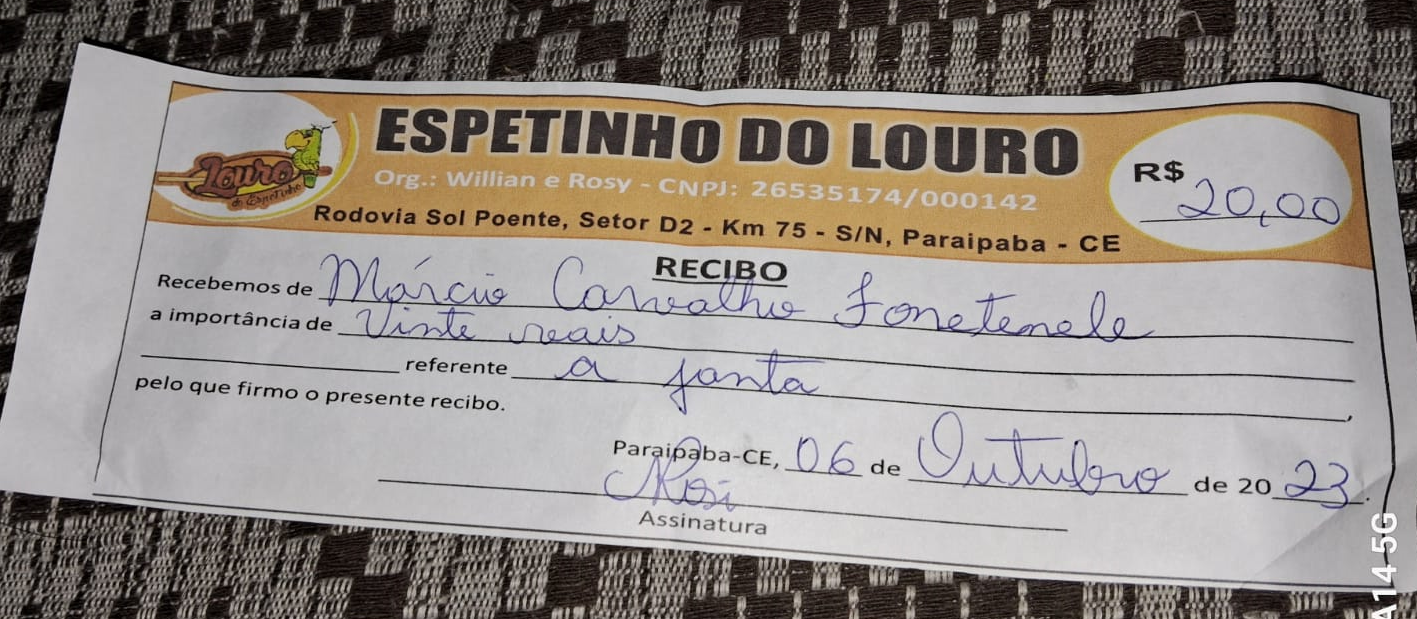 ESPETINHO DO LOURO
Louro
do Espetinho
Org.: Willian e Rosy - CNPJ: 26535174/000142
R$ 20,00
Rodovia Sol Poente, Setor D2 - Km 75 - S/N, Paraipaba - CE
RECIBO
Recebemos de Márcio Carvalho Fonetenele
a importância de Vinte reais
referente a janta,
pelo que firmo o presente recibo.
Paraipaba-CE, 06 de Outubro de 2023.
Rosi
Assinatura
A14 5G